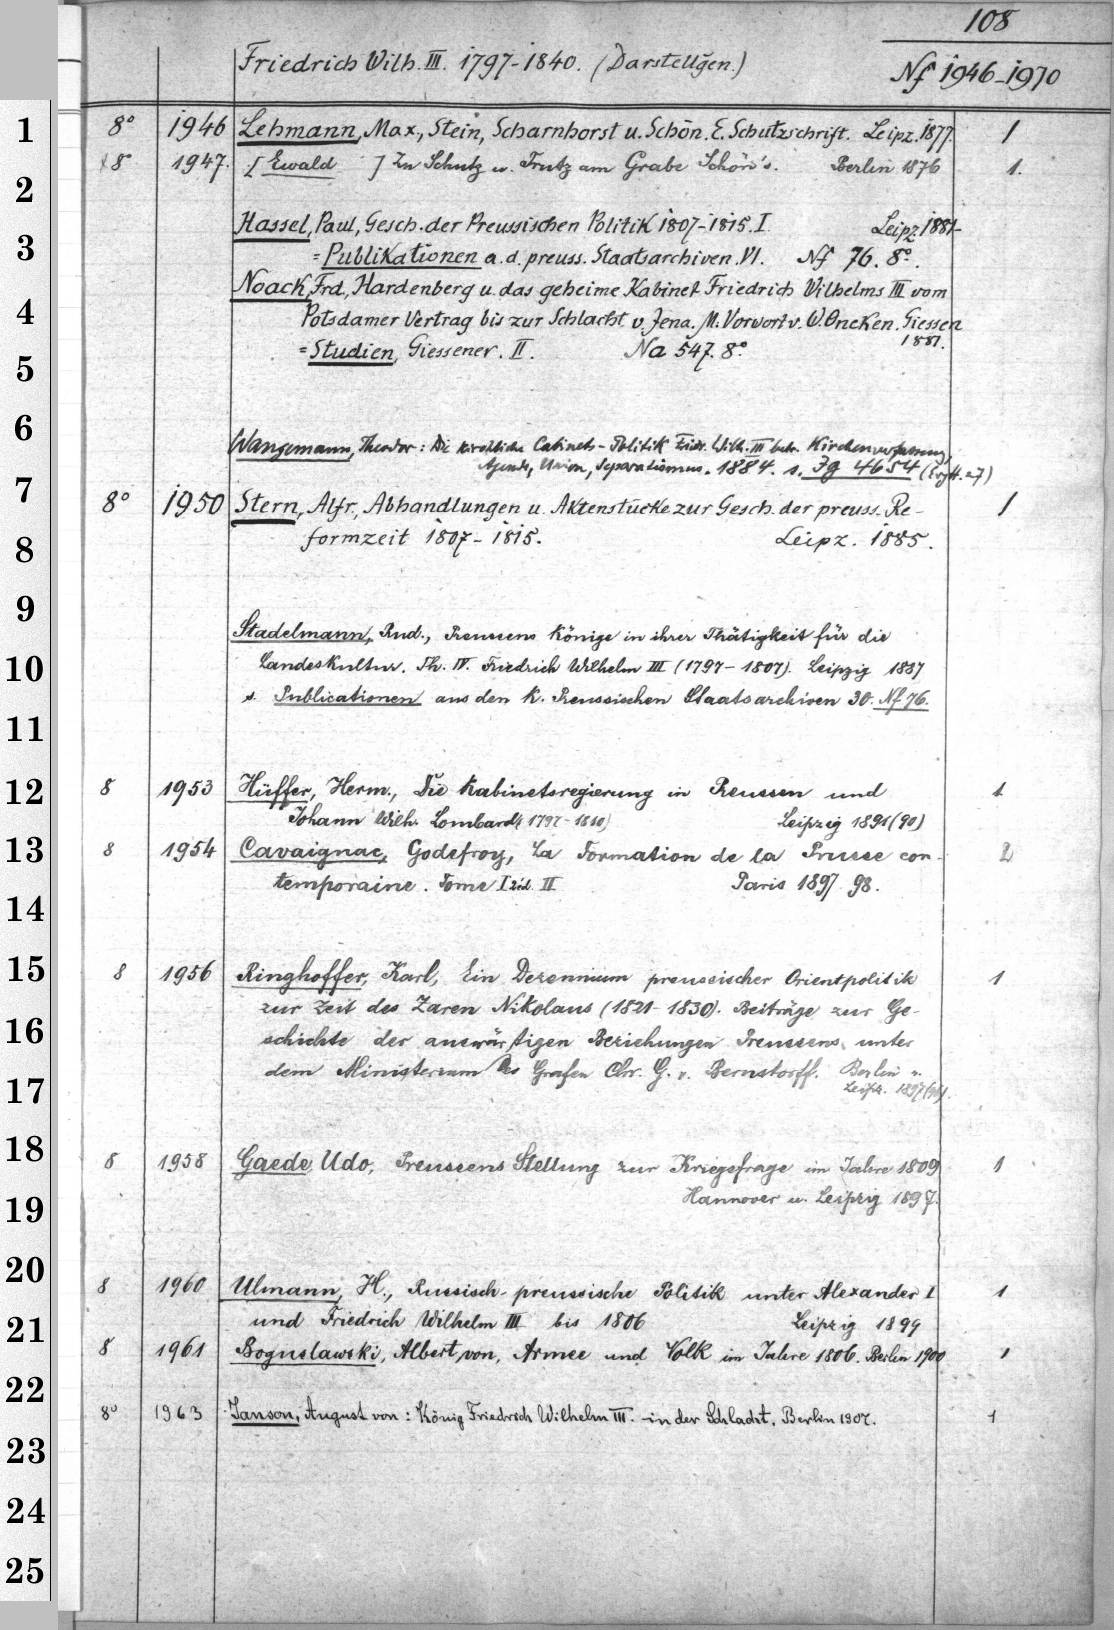 108
Friedrich Wilh. III. 1797-1840. (Darstellg̃en.)
Nf 1946-1970
1
8° 1946 Lehmann, Max, Stein, Scharnhorst u. Schön. E. Schutzschrift. Leipz. 1877. 1
8° 1947. [Ewald ] Zu Schutz u. Trutz am Grabe Schön's. Berlin 1876 1.
2
Hassel, Paul, Gesch. der Preussischen Politik 1807-1815. I. Leipz. 1881-
3
= Publikationen a. d. preuss. Staatsarchiven. VI. Nf 76. 8°.
Noack, Frd., Hardenberg u. das geheime Kabinet Friedrich Wilhelms III vom
4
Potsdamer Vertrag bis zur Schlacht v. Jena. M. Vorwort v. W. Oncken. Giessen
1881.
= Studien, Giessener. II. Na 547. 8°
5
6
Wangemann, Theodor: Die kirchliche Cabinets-Politik Fried. Wilh. III betr. Kirchenverfassung,
Agende, Union, Separatismus. 1884. s. Zg 4654
7
8° 1950 Stern, Alfr., Abhandlungen u. Aktenstücke zur Gesch. der preuss. Re- 1
8
formzeit 1807-1815. Leipz. 1885.
9
Stadelmann, Rud., Preussens Könige in ihrer Thätigkeit für die
10
Landeskultur. Th. IV. Friedrich Wilhelm III (1797-1807). Leipzig 1887
s. Publicationen aus den K. Preussischen Staatsarchiven 30. Nf 76.
11
12
8 1953 Hüffer, Herm., Die Kabinetsregierung in Preussen und 1
Johann Wilh. Lombard (1797-1810) Leipzig 1891 (90)
13
8 1954 Cavaignac, Godefroy, La Formation de la Prusse con- 2
temporaine. Tome I 2éd. II Paris 1897. 98.
14
15
8 1956 Ringhoffer, Karl, Ein Dezennium preussischer Orientpolitik 1
zur Zeit des Zaren Nikolaus (1821-1830). Beiträge zur Ge-
16
schichte der auswärtigen Beziehungen Preussens unter
dem Ministerium des Grafen Chr. G. v. Bernstorff. Berlin u.
17
Leipz. 1897
18
8 1958 Gaede, Udo, Preussens Stellung zur Kriegsfrage im Jahre 1809 1
19
Hannover u. Leipzig 1897.
20
8 1960 Ulmann, H., Russisch-preussische Politik unter Alexander I 1
21
und Friedrich Wilhelm III bis 1806 Leipzig 1899
8 1961 Boguslawski, Albert von, Armee und Volk im Jahre 1806. Berlin 1900 1
22
8° 1963 Janson, August von: König Friedrich Wilhelm III. in der Schlacht. Berlin 1907. 1
23
24
25